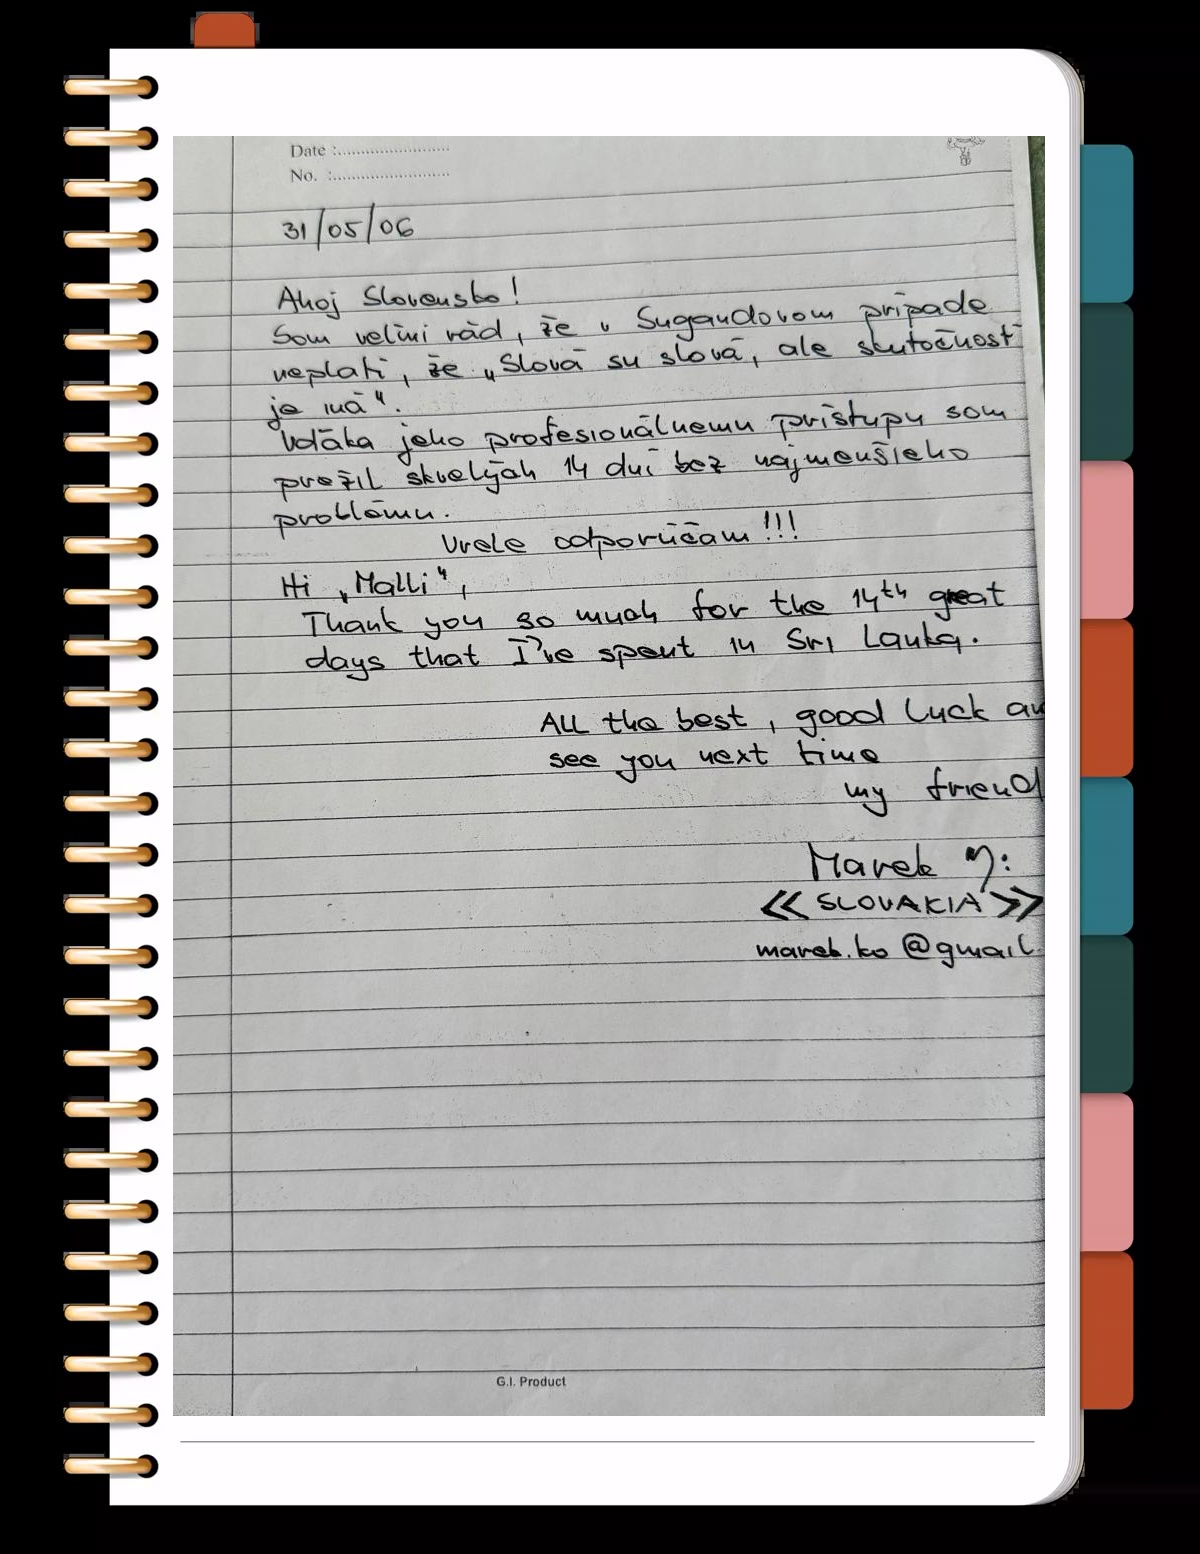 Date :........................
No. :.........................
31/05/06
Ahoj Slovensko!
Som veľmi rád, že v Sugandovom prípade
neplatí, že „Slová sú slová, ale skutočnosť
je iná“.
Vďaka jeho profesionálnemu prístupu som
prežil skvelých 14 dní bez najmenšieho
problému.
Vrele odporúčam!!!
Hi „Malli“,
Thank you so much for the 14th great
days that I've spent in Sri Lanka.
ALL the best, good luck an
see you next time
my friend
Marek
<< SLOVAKIA >>
marek.ko@gmail.
G.I. Product